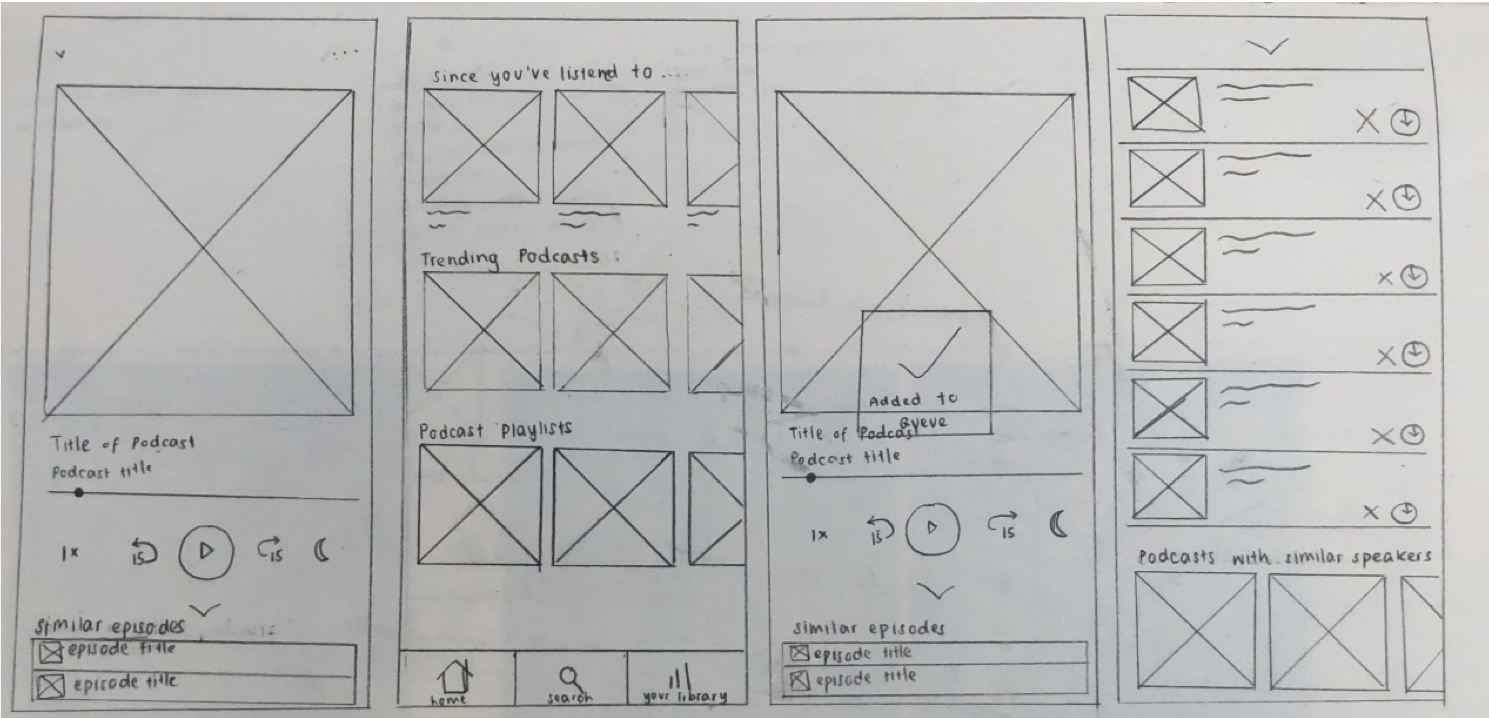 Title of Podcast
Podcast title
1x
15
15
Similar episodes
episode title
episode title
Since you've listend to ....
Trending Podcasts
Podcast Playlists
home
search
your library
Added to
Queue
Title of Podcast
Podcast title
1x
15
15
Similar episodes
episode title
episode title
Podcasts with similar speakers